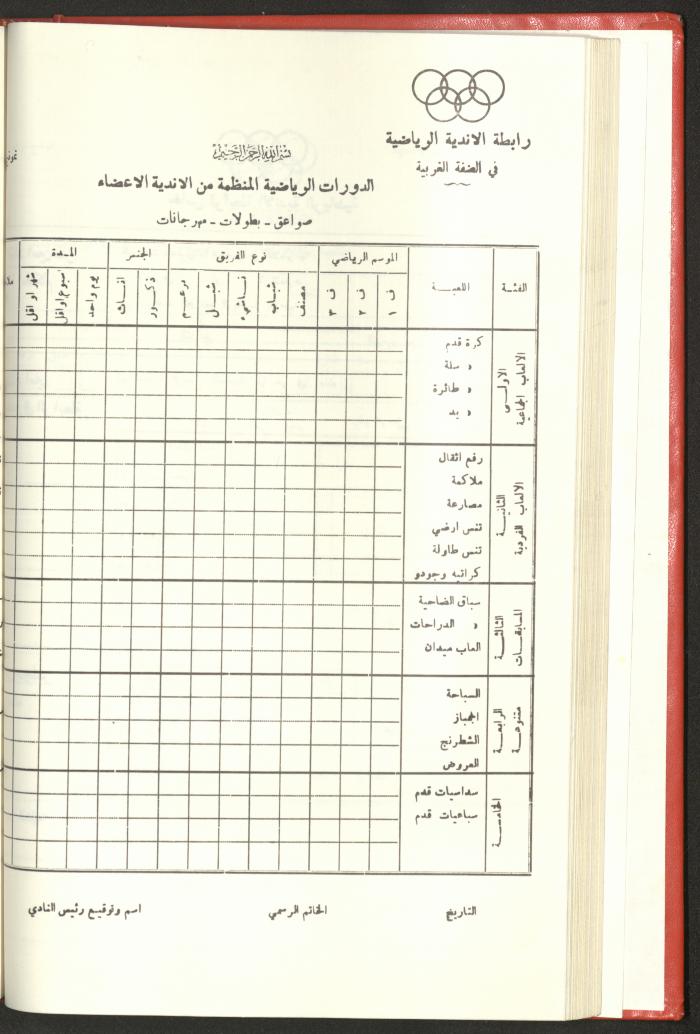 رابطة الاندية الرياضية
في الضفة الغربية
بسم الله الرحمن الرحيم
الدورات الرياضية المنظمة من الاندية الاعضاء
صواعق - بطولات - مهرجانات
الفئة
اللعبة
الموسم الرياضي
نوع الفريق
الجنس
المدة
ف ١
ف ٢
ف ٣
مصنف
شباب
ناشيء
شبل
برعم
ذكور
اناث
يوم واحد
اسبوع او اقل
شهر او اقل
الالعاب الجماعية
الاولى
كرة قدم
" سلة
" طائرة
" يد
الالعاب الفردية
الثانية
رفع اثقال
ملاكمة
مصارعة
تنس ارضي
تنس طاولة
كراتيه وجودو
المسابقات
الثالثة
سباق الضاحية
" الدراجات
العاب ميدان
متنوعة
الرابعة
السباحة
الجمباز
الشطرنج
العروض
الخامسة
سداسيات قدم
سباعيات قدم
التاريخ
الخاتم الرسمي
اسم وتوقيع رئيس النادي